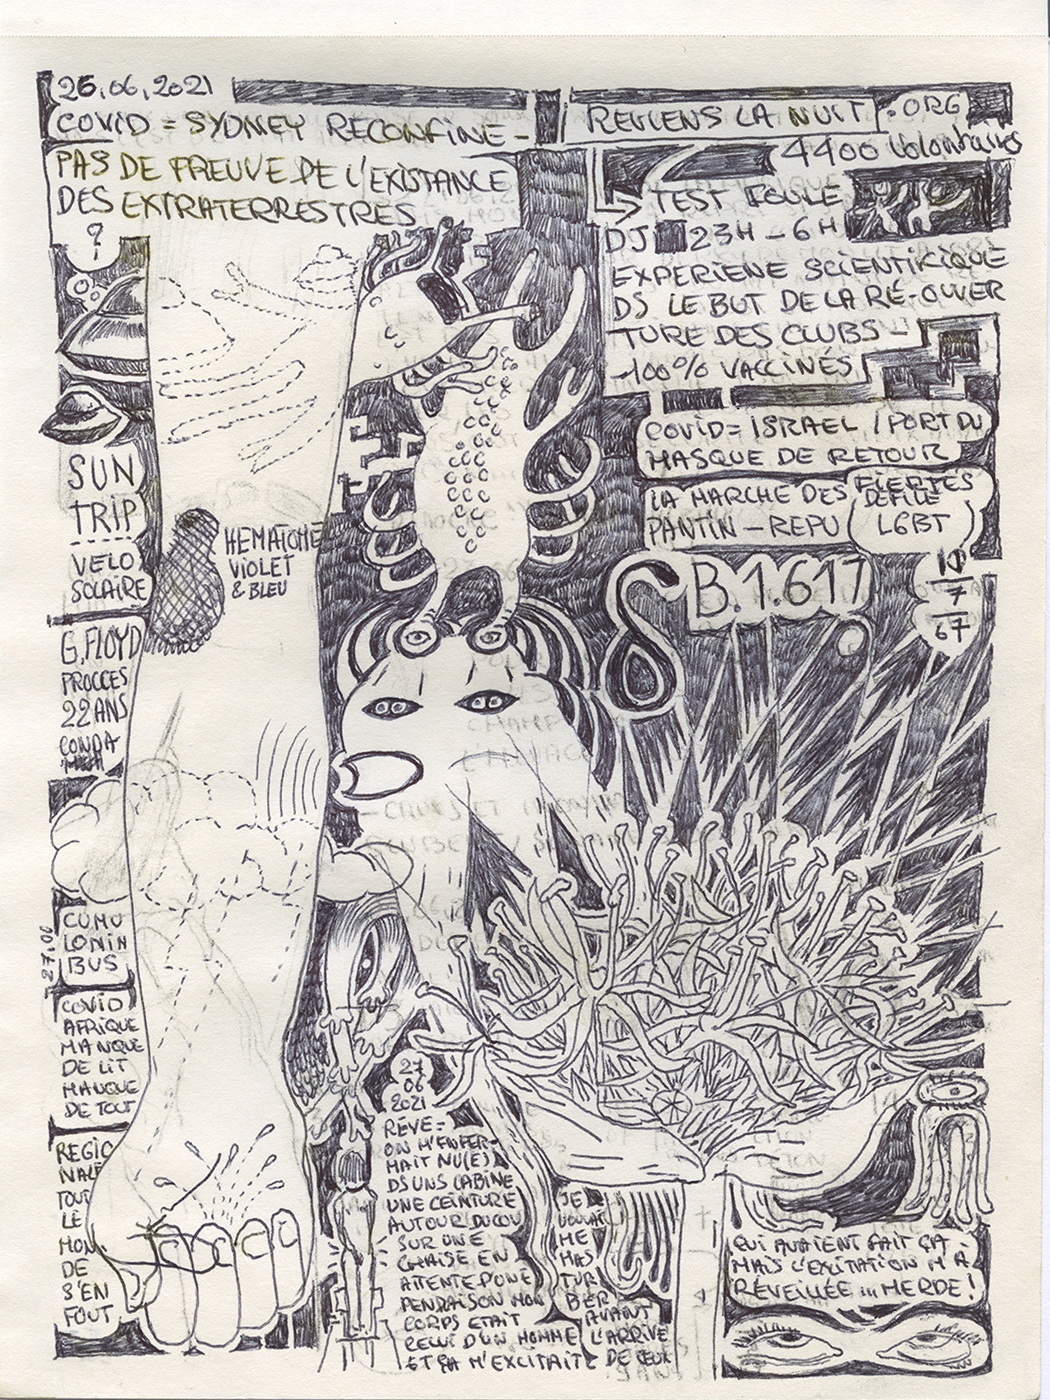 25.06.2021
COVID = SYDNEY RECONFINE -
PAS DE PREUVE DE L'EXISTANCE
DES EXTRATERRESTRES
?
REVIENS LA NUIT .ORG
4400 volontaires
TEST FOULE
DJ 23H - 6H
EXPERIENE SCIENTIFIQUE
DS LE BUT DE LA RÉ-OUVER
TURE DES CLUBS -
-100% VACCINÉS
COVID = ISRAEL / PORT DU
MASQUE DE RETOUR
LA MARCHE DES FIERTÉS
PANTIN - REPU (DÉFILÉ
LGBT)
B.1.617
67
SUN
TRIP
VELO
SOLAIRE
HEMATOME
VIOLET
& BLEU
G. FLOYD
PROCCES
22 ANS
CONDA
27.06
CUMU
LONIN
BUS
COVID
AFRIQUE
MANQUE
DE LIT
MANQUE
DE TOUT
REGIO
NALE
TOUT
LE
MON
DE
S'EN
FOUT
27
06
2021
RÊVE =
ON M'ENFER-
MAIT NU(E)
DS UNS CABINE
UNE CEINTURE
AUTOUR DU COU
SUR UNE
CHAISE EN
ATTENTE D'UNE
PENDAISON MON
CORPS ETAIT
CELUI D'UN HOMME
ET ÇA M'EXCITAIT
JE
VOULAI
ME
MAS
TUR
BER
AVANT
L'ARRIVÉ
DE CEUX
QUI AVAIENT FAIT ÇA
MAIS L'EXCITATION M'A
RÉVEILLÉE ... MERDE !